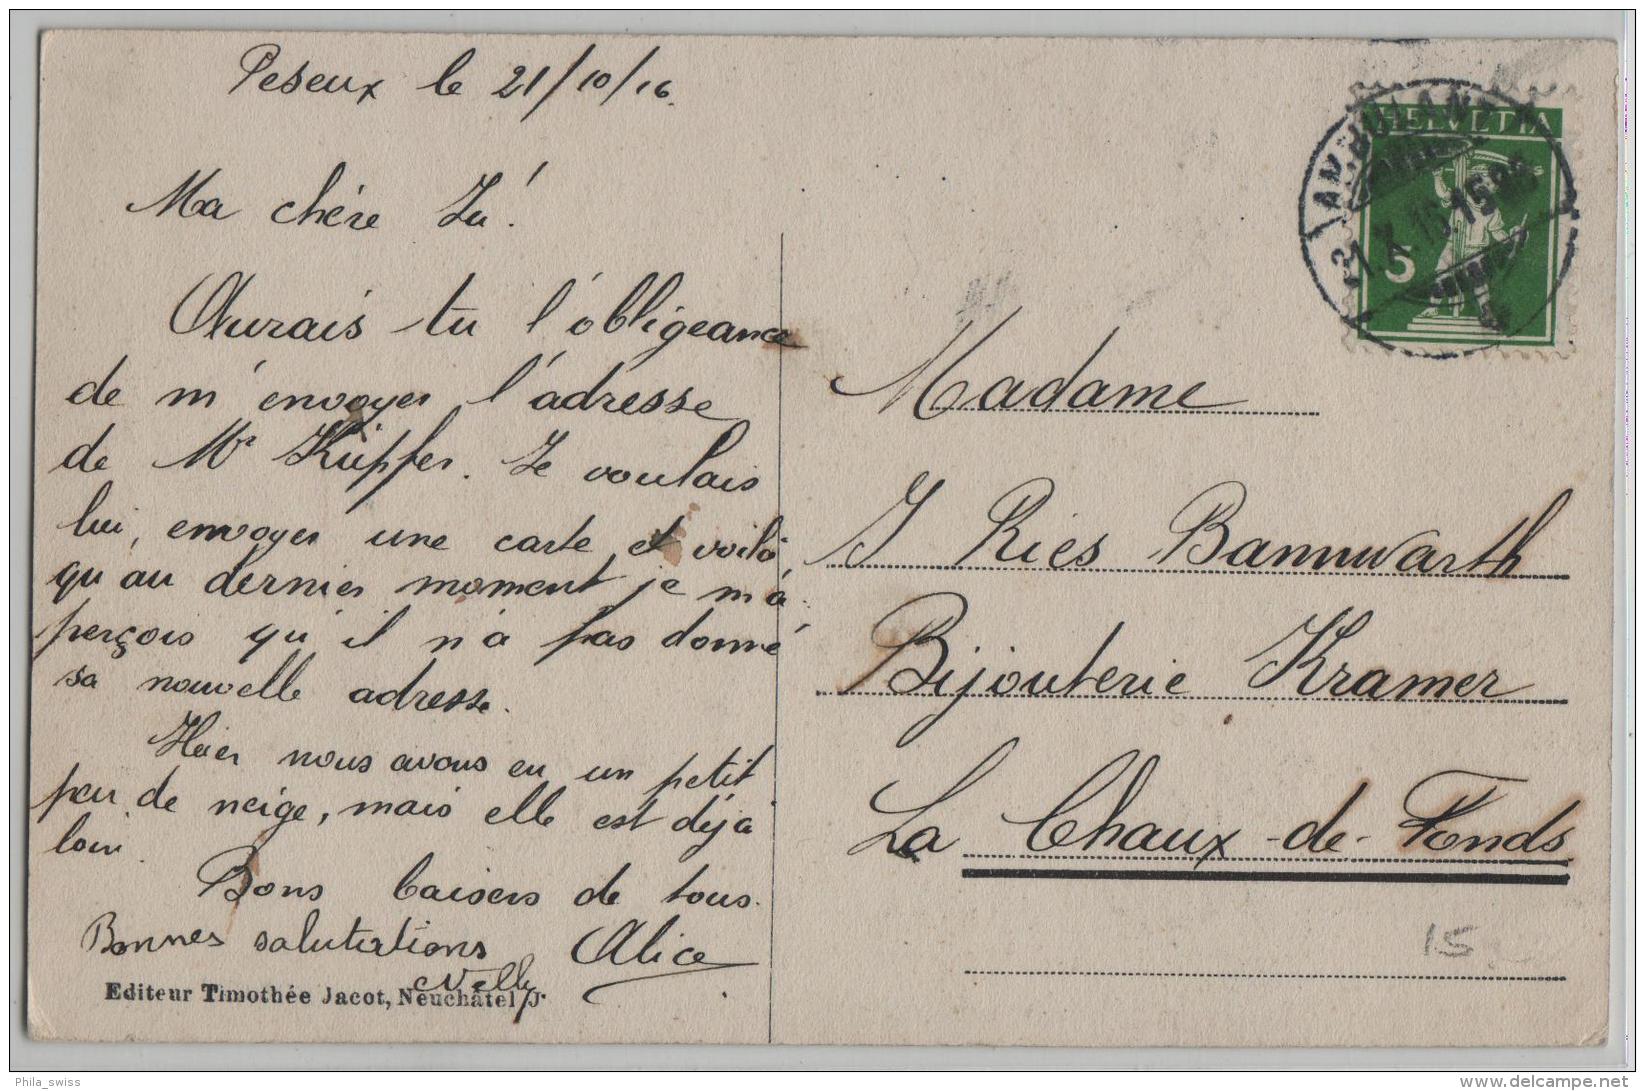 Peseux le 21/10/16.
Ma chère Lu!
Aurais-tu l'obligeance
de m'envoyer l'adresse
de Mr Küpfer. Je voulais
lui, envoyer une carte, et voilà
qu'au dernier moment je m'a-
perçois qu'il n'a pas donné
sa nouvelle adresse.
Hier nous avons eu un petit
peu de neige, mais elle est déjà
loin.
Bons baisers de tous.
Bonnes salutations Alice
Nelly
Editeur Timothée Jacot, Neuchâtel/J.
HELVETIA
5
AMBULANT
21.X.16.15
Madame
J Ries Bannwarth
Bijouterie Kramer
La Chaux-de-Fonds
15
Phila_swiss
delcampe.net